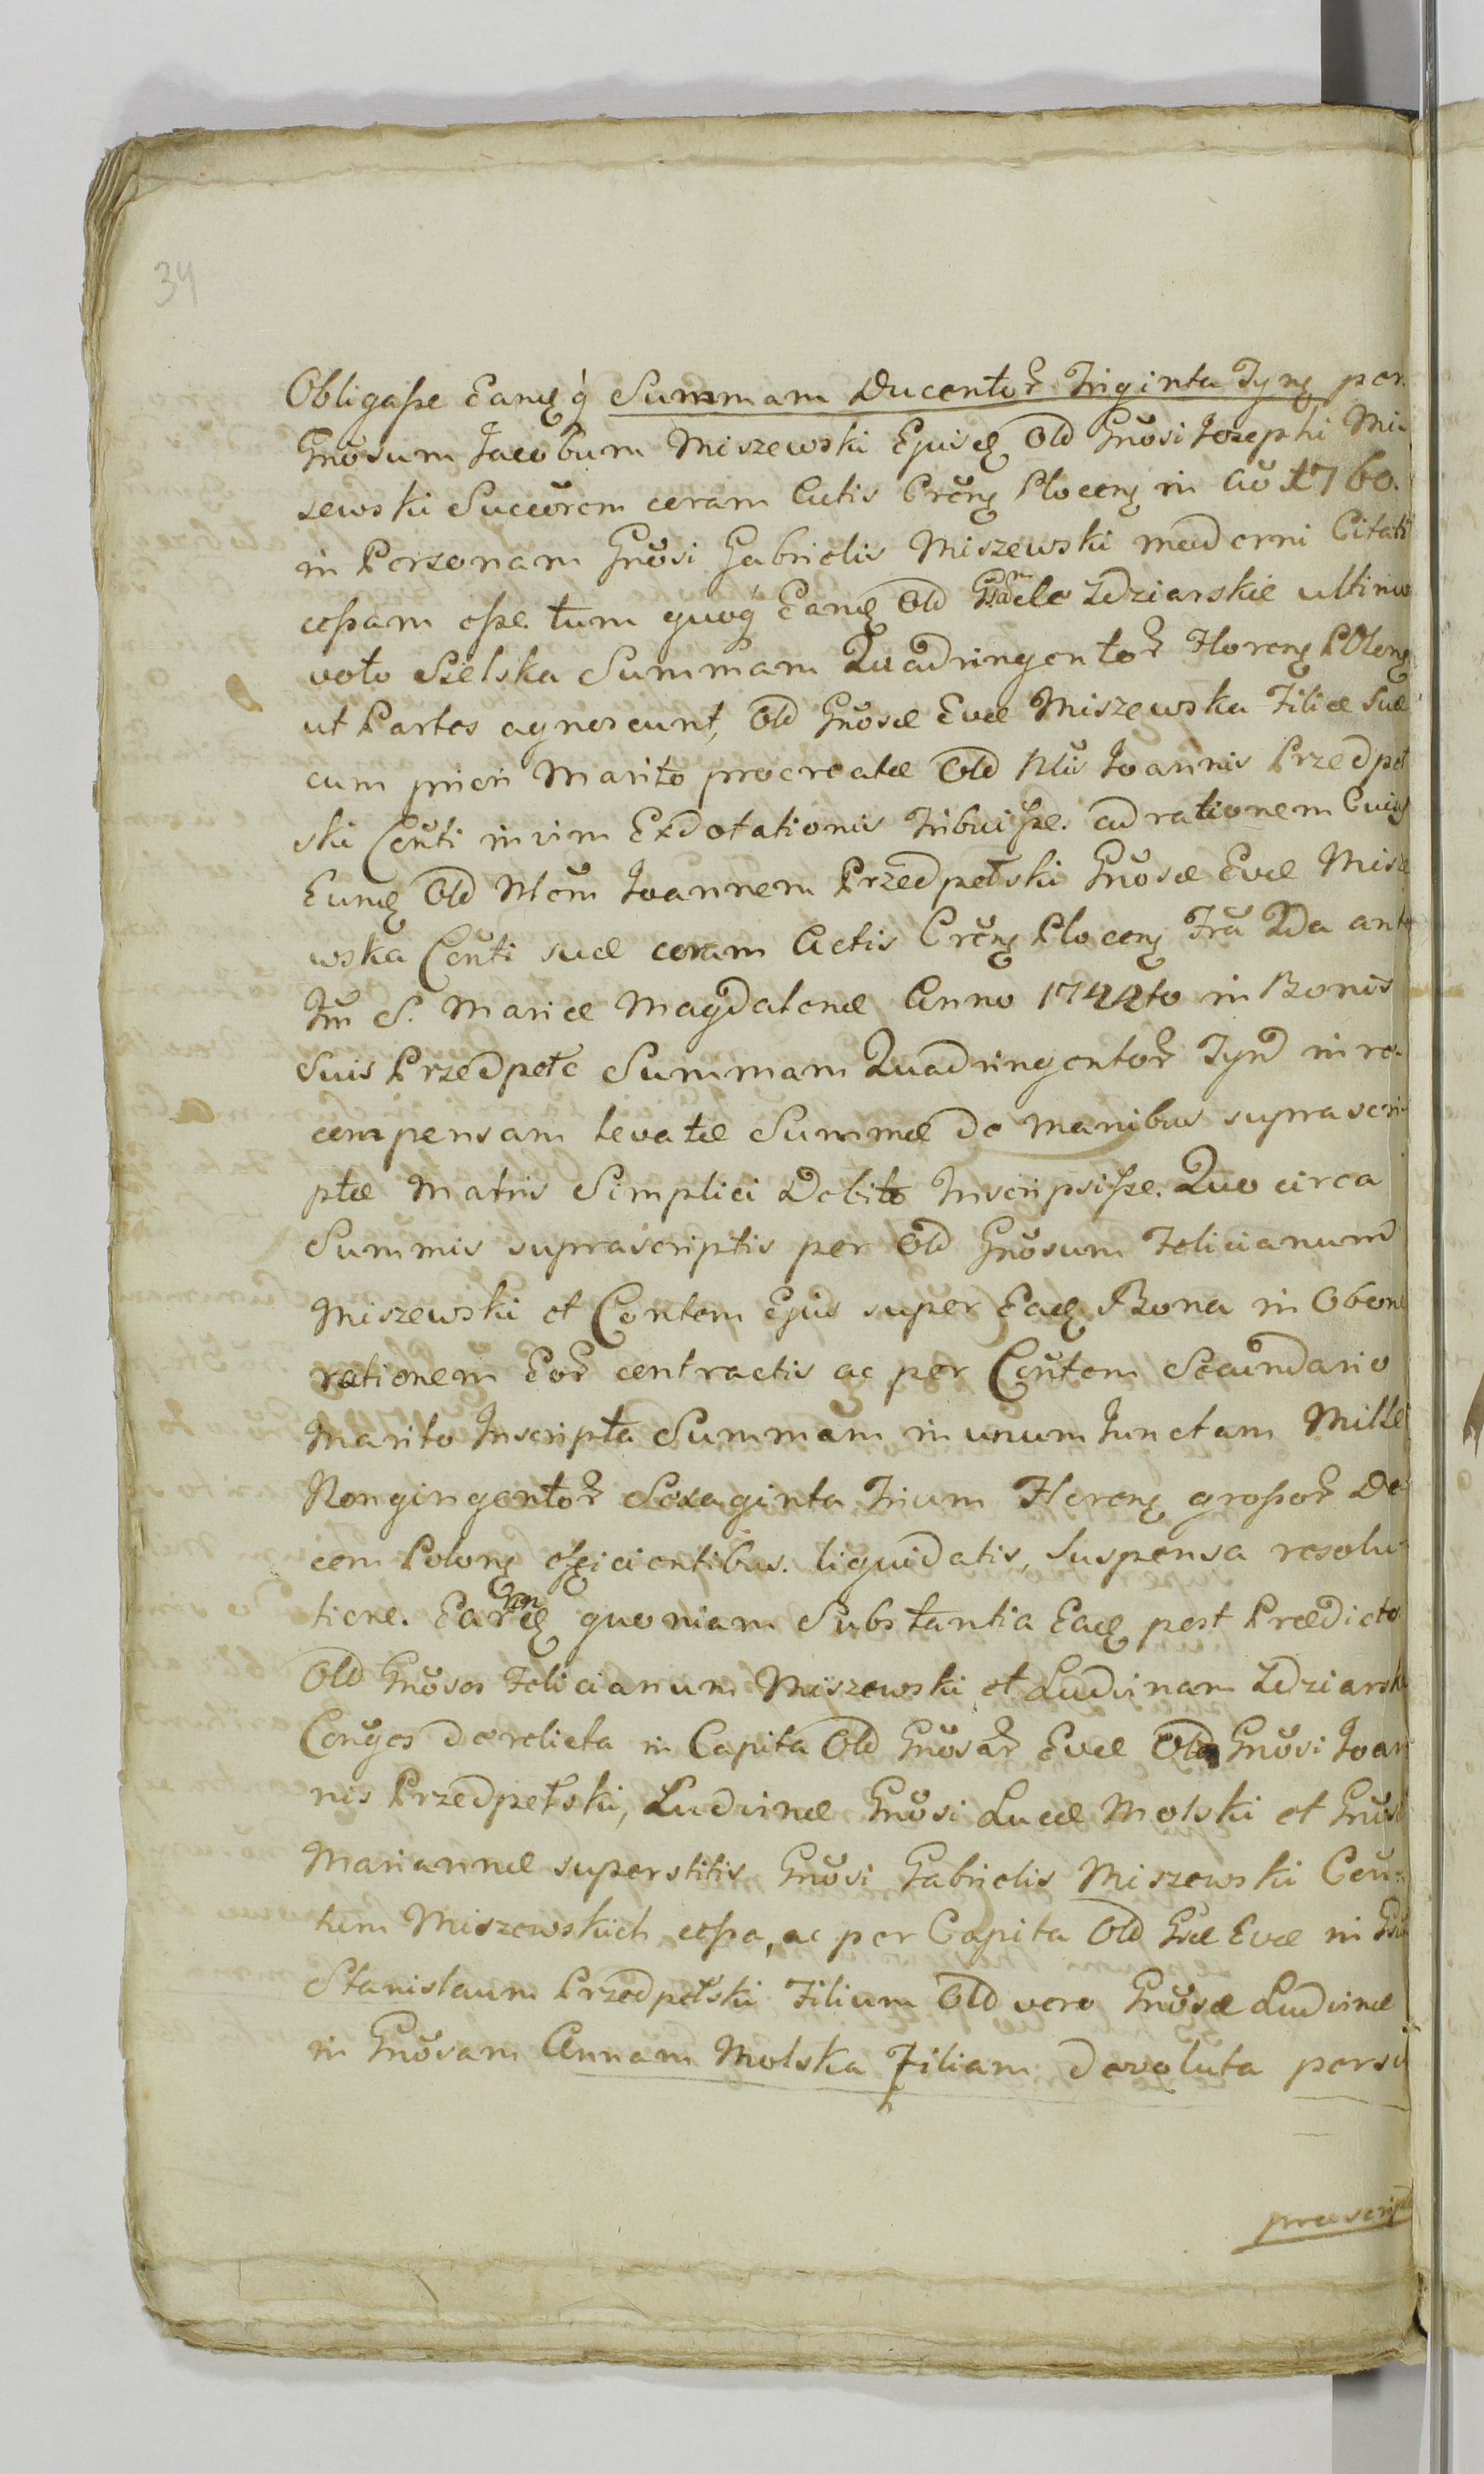 34
Obligaſse Eamq́ Summam Ducentor Triginta Tyng per
Gnosum Jacobum Miszewski Ejusd Old Gnosi Josephi Mi-
szewski Succorem coram Actis Crēng Ploceng in Ao 1760.
in Personam Gnosi Gabrielis Miszewski moderni Citati
ceſsam eſse. tum quoq́ Eamd Old Ldziarskie ultimo
voto Sielska Summam Quadringentor Floreng POleng
ut Partes agnoscunt, Old Gnosæ Evæ Miszewska Filiæ Suæ
cum priori Marito procreatæ Old Mĩi Joannis Przedpeł
ski Conti in vim Exdotationis Tribuiſse. ad rationem Cuius
Eumd Old Mcum Joannem Przedpełski Gnosæ Evæ Misze
wska Conti suæ coram Actis Crēng Ploceng Fra 2da ante
Fm S. Mariæ Magdalenæ Anno 1744to in Bonis
Suis Przedpełe Summam Quadringentor Tynd in re-
compensam levatæ Summæ de manibus suprascri-
ptæ Matris Simplici Debito Inscripsiſse. Quo circa
Summis suprascriptis per Old Gnosum Felicianum
Miszewski et Contem Ejus super Ead Bona in Obone
rationem Eor contractis ac per Contem Secundario
Marito Inscripta Summam in unum Junctam Mille
Nongingentor Sexaginta Trium Floreng groſsor De
cem Polong efficientibus. liquidatis, suspensa resolu-
tione. quoniam Substantia Ead post Prædicto
Old Gnosos Felicianum Miszewski et Ludvinam Ldziarska
Conges derelicta in Capita Old Gnosar Evæ Old Gnosi Joan
nis Przedpełski, Ludvinæ Gnosi Lucæ Molski et Gnosi
Mariannæ superstitis Gnosi Gabrielis Miszewski Con-
tum Miszewskich ceſsa, ac per Capita Old Gsæ Evæ in Gsu
Stanislaum Przedpełski Filium Old vero Gnosæ Ludvinæ
in Gnosam Annam Molska Filiam devoluta persi
præscript